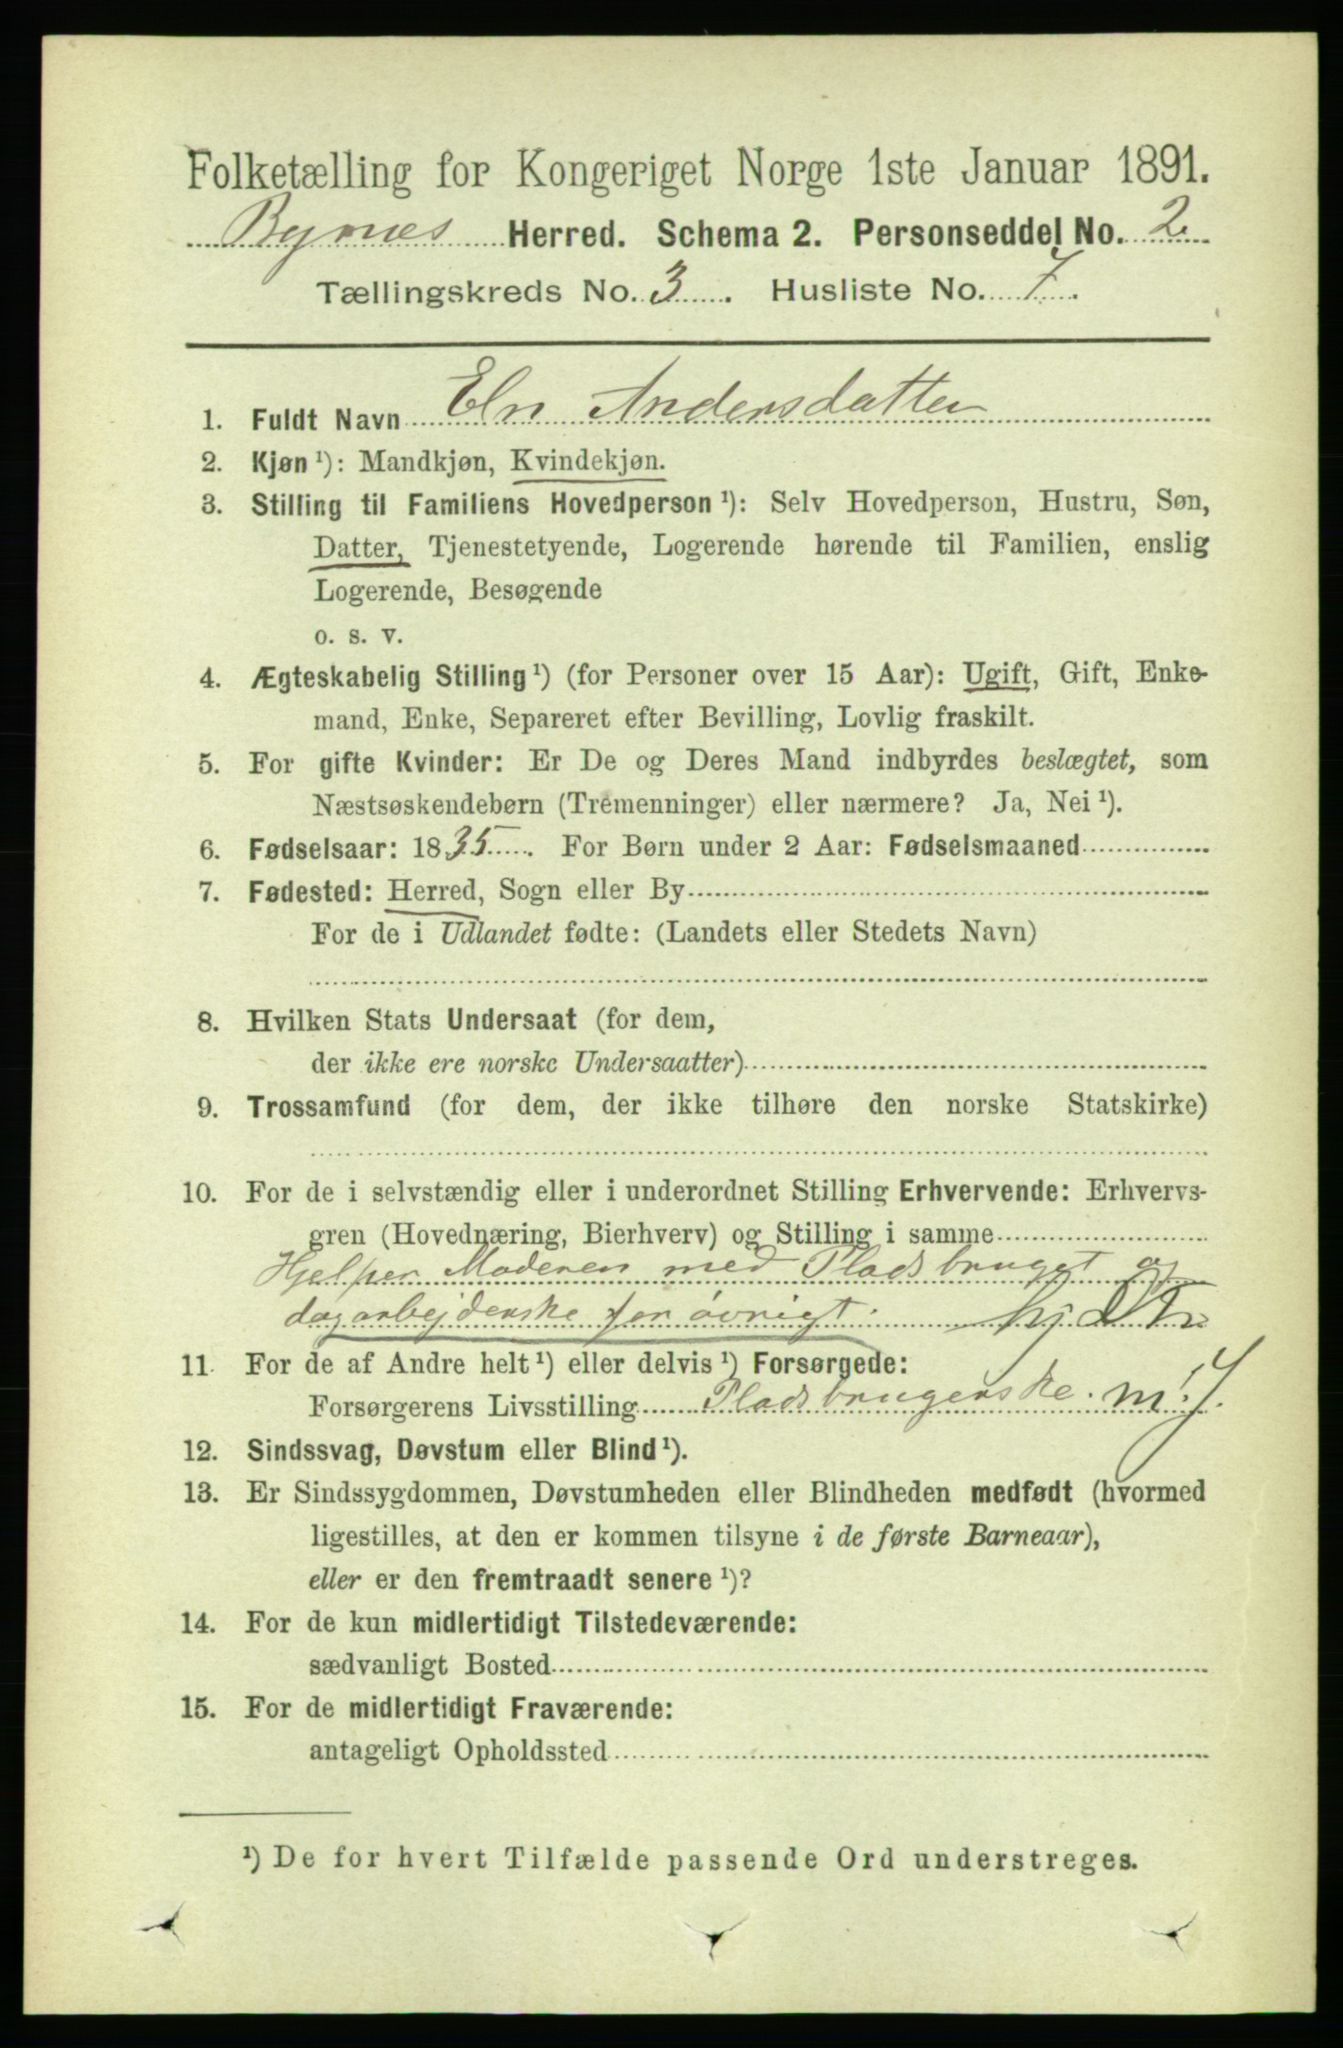 Folketælling for Kongeriget Norge 1ste Januar 1891.
Bynes Herred. Schema 2. Personseddel No. 2.
Tællingskreds No. 3. Husliste No. 7.
1. Fuldt Navn Eln Andersdatter
2. Kjøn ¹): Mandkjøn, Kvindekjøn.
3. Stilling til Familiens Hovedperson ¹): Selv Hovedperson, Hustru, Søn,
Datter, Tjenestetyende, Logerende hørende til Familien, enslig
Logerende, Besøgende
o. s. v.
4. Ægteskabelig Stilling ¹) (for Personer over 15 Aar): Ugift, Gift, Enke-
mand, Enke, Separeret efter Bevilling, Lovlig fraskilt.
5. For gifte Kvinder: Er De og Deres Mand indbyrdes beslægtet, som
Næstsøskendebørn (Tremenninger) eller nærmere? Ja, Nei ¹).
6. Fødselsaar: 1835. For Børn under 2 Aar: Fødselsmaaned
7. Fødested: Herred, Sogn eller By
For de i Udlandet fødte: (Landets eller Stedets Navn)
8. Hvilken Stats Undersaat (for dem,
der ikke ere norske Undersaatter)
9. Trossamfund (for dem, der ikke tilhøre den norske Statskirke)
10. For de i selvstændig eller i underordnet Stilling Erhvervende: Erhvervs-
gren (Hovednæring, Bierhverv) og Stilling i samme
Hjelper Moderen med Pladsbruget og
dagarbejderske for øvrigt.
11. For de af Andre helt ¹) eller delvis ¹) Forsørgede:
Forsørgerens Livsstilling Pladsbrugerske.
12. Sindssvag, Døvstum eller Blind ¹).
13. Er Sindssygdommen, Døvstumheden eller Blindheden medfødt (hvormed
ligestilles, at den er kommen tilsyne i de første Barneaar),
eller er den fremtraadt senere ¹)?
14. For de kun midlertidigt Tilstedeværende:
sædvanligt Bosted
15. For de midlertidigt Fraværende:
antageligt Opholdssted
¹) De for hvert Tilfælde passende Ord understreges.